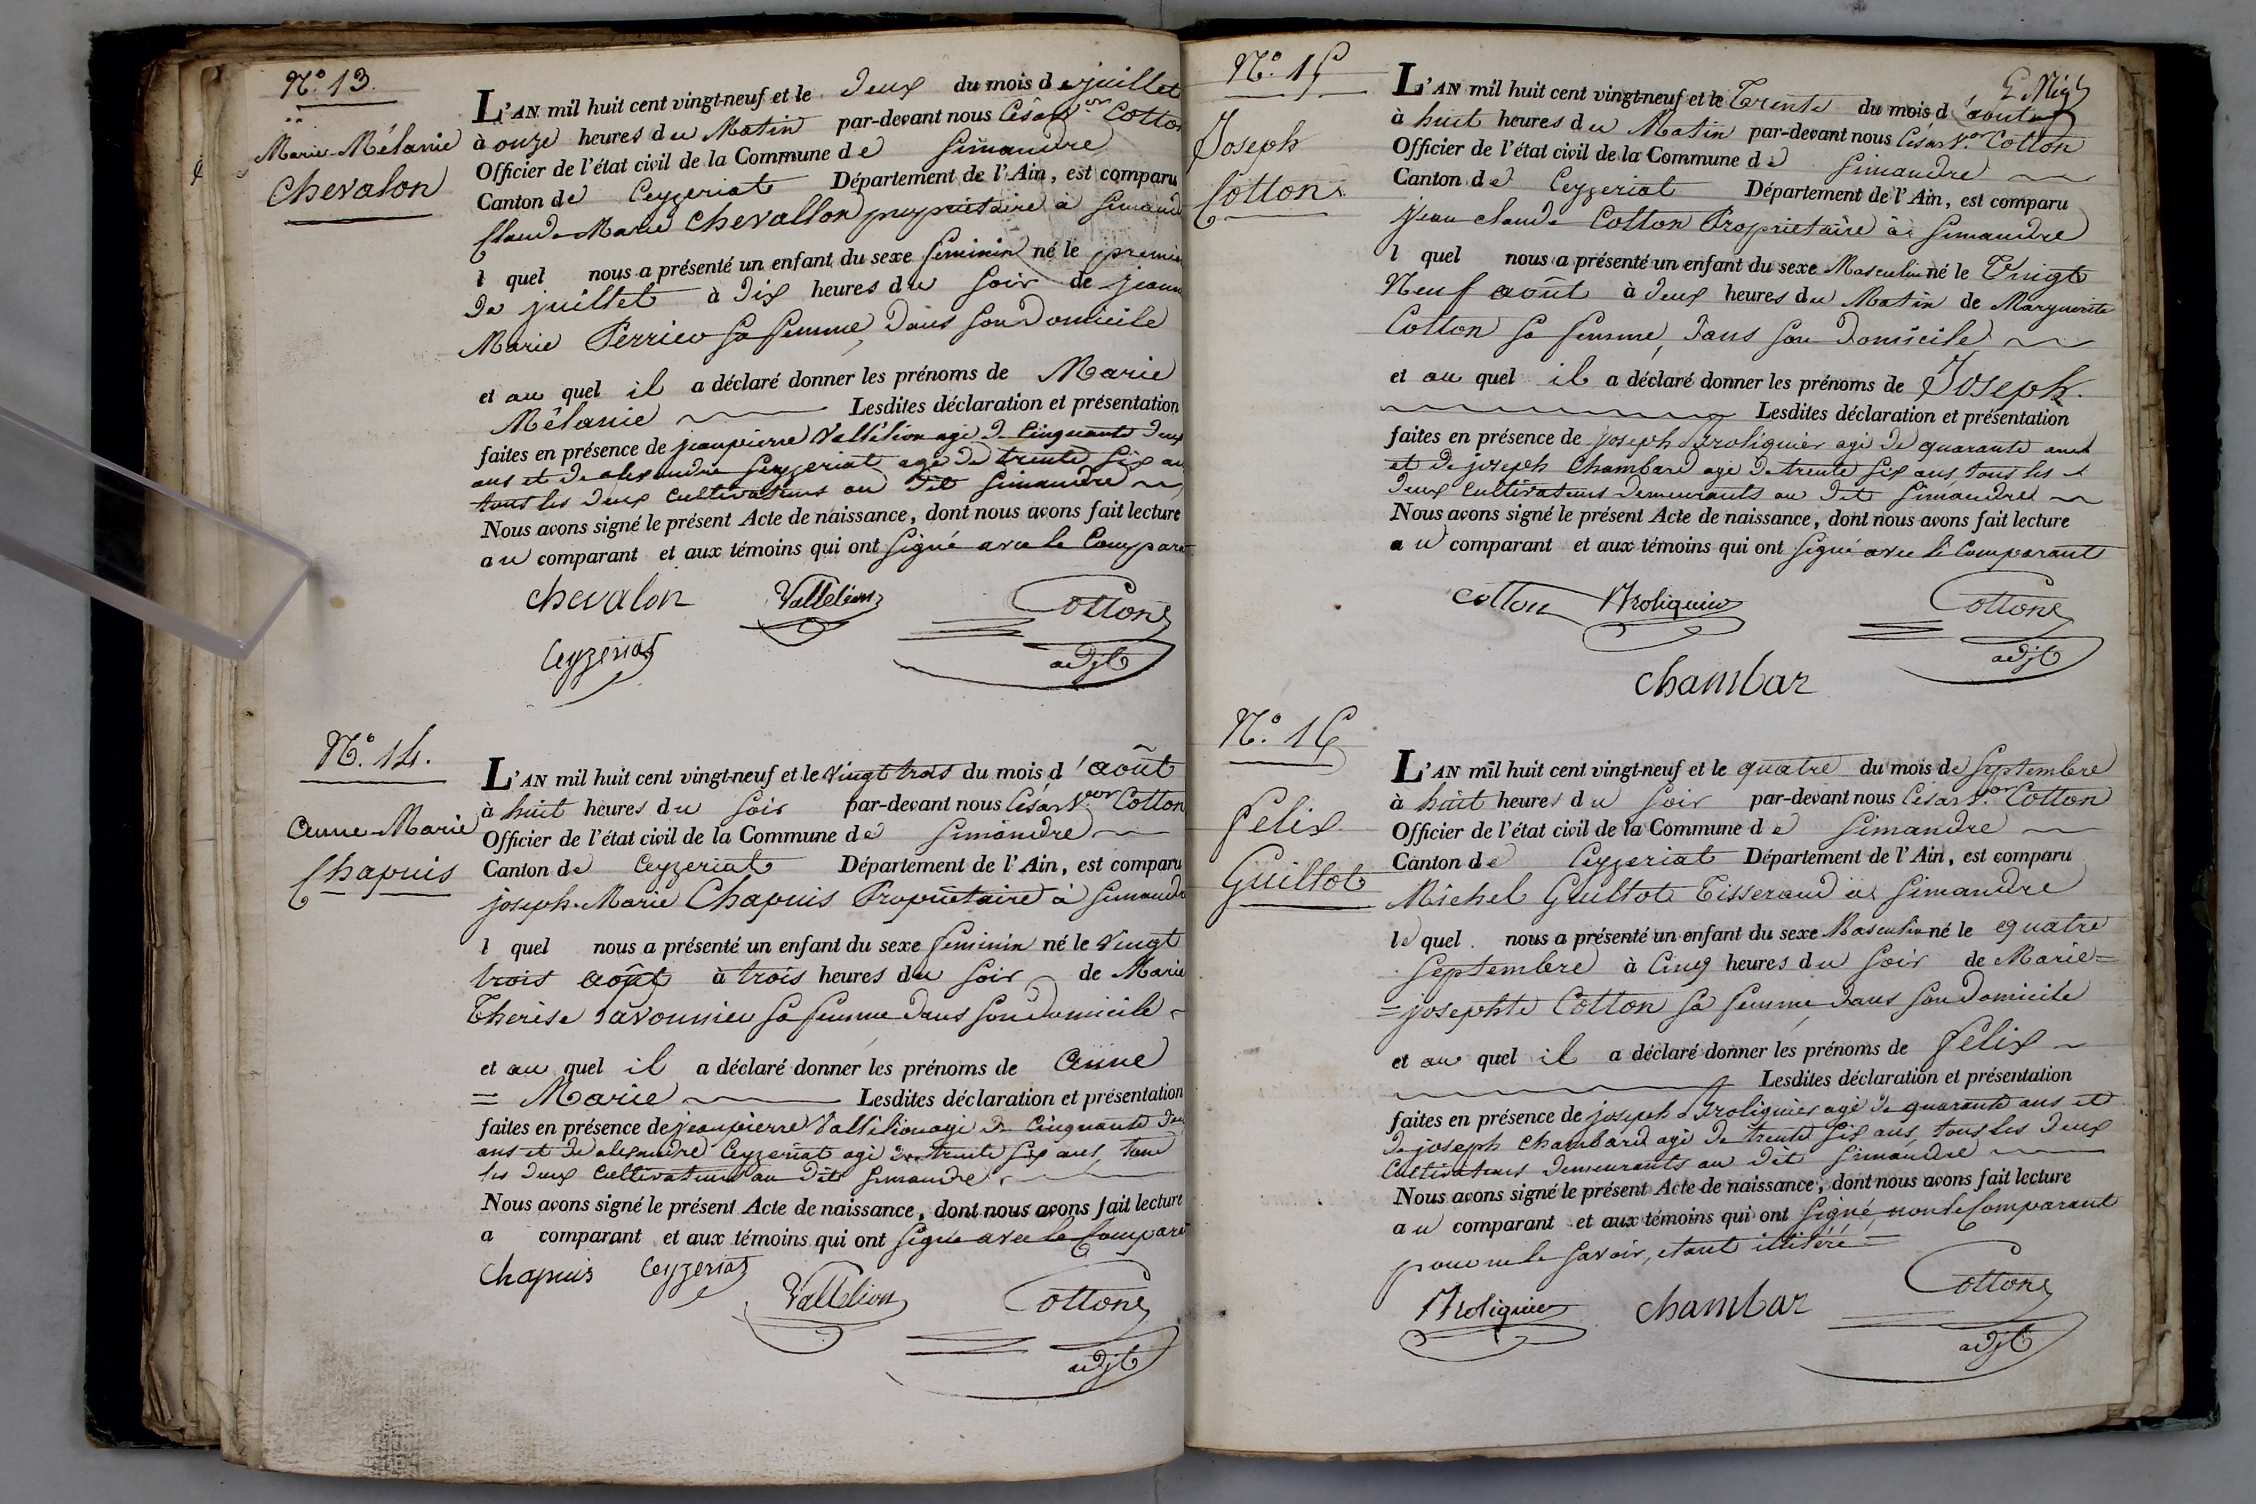 N.° 13.
Marie-Mélanie
Chevalon
L'AN mil huit cent vingt-neuf et le deux du mois de juillet
à onze heures du Matin par-devant nous César V.or Cotton
Officier de l'état civil de la Commune de Simandre
Canton de Ceyzeriat Département de l'Ain, est comparu
Claude Marie Chevallon propriétaire à Simand
l quel nous a présenté un enfant du sexe feminin né le premie
de juillet à dix heures du soir de jeanne
Marie Perrier sa femme, dans son Domicile
et au quel il a déclaré donner les prénoms de Marie
Mélanie Lesdites déclaration et présentation
faites en présence de jeanpierre Vallélion agé de Cinquante deux
ans et de alexandre Ceyzeriat agé de trente six an
tous les deux cultivateurs au dit Simandre
Nous avons signé le présent Acte de naissance, dont nous avons fait lecture
au comparant et aux témoins qui ont signé avec le Comparant
chevalon Vallélion Cotton
Ceyzeriat adjt
N.° 14.
Anne-Marie
Chapuis
L'AN mil huit cent vingt-neuf et le vingt trois du mois d'août
à huit heures du soir par-devant nous César V.or Cotton
Officier de l'état civil de la Commune de Simandre
Canton de Ceyzeriat Département de l'Ain, est comparu
joseph-Marie Chapuis Propriétaire à Simandre
l quel nous a présenté un enfant du sexe feminin né le Vingt
trois août à trois heures du soir de Marie
Thérèse Savonnier sa femme dans son domicile
et au quel il a déclaré donner les prénoms de Anne
= Marie Lesdites déclaration et présentation
faites en présence de jeanpierre Vallélion agé de Cinquante deux
ans et de alexandre Ceyzeriat agé de trente six ans, tous
les deux cultivateurs au dit Simandre
Nous avons signé le présent Acte de naissance, dont nous avons fait lecture
a comparant et aux témoins qui ont signé avec le Comparant
Chapuis Ceyzeriat
Vallélion Cotton
adjt
N.° 15
Joseph
Cotton
L'AN mil huit cent vingt-neuf et le Trente du mois d'août
à huit heures du Matin par-devant nous César V.or Cotton
Officier de l'état civil de la Commune de Simandre
Canton de Ceyzeriat Département de l'Ain, est comparu
jean claude Cotton Propriétaire à Simandre
l quel nous a présenté un enfant du sexe Masculin né le Vingt
Neuf août à deux heures du Matin de Marguerite
Cotton sa femme, dans son Domicile
et au quel il a déclaré donner les prénoms de Joseph.
Lesdites déclaration et présentation
faites en présence de joseph Broliquier agé de quarante ans
et de joseph Chambard agé de trente six ans, tous les
deux cultivateurs demeurants au dit Simandre
Nous avons signé le présent Acte de naissance, dont nous avons fait lecture
au comparant et aux témoins qui ont signé avec le Comparant
cotton Broliquier Cotton
adjt
chambar
N.° 16
Felix
Guillot
L'AN mil huit cent vingt-neuf et le quatre du mois de Septembre
à huit heures du soir par-devant nous César V.or Cotton
Officier de l'état civil de la Commune de Simandre
Canton de Ceyzeriat Département de l'Ain, est comparu
Michel Guillot Tisserand à Simandre
le quel nous a présenté un enfant du sexe Masculin né le quatre
Septembre à Cinq heures du soir de Marie=
=josephte Cotton sa femme, dans son Domicile
et au quel il a déclaré donner les prénoms de Felix
Lesdites déclaration et présentation
faites en présence de joseph Broliquier agé de quarante ans et
de joseph Chambard agé de trente six ans, tous les deux
Cultivateurs demeurants au dit Simandre
Nous avons signé le présent Acte de naissance, dont nous avons fait lecture
au comparant et aux témoins qui ont signé non le Comparant
pour ne le savoir, étant illitéré =
Broliquier chambar Cotton
adjt